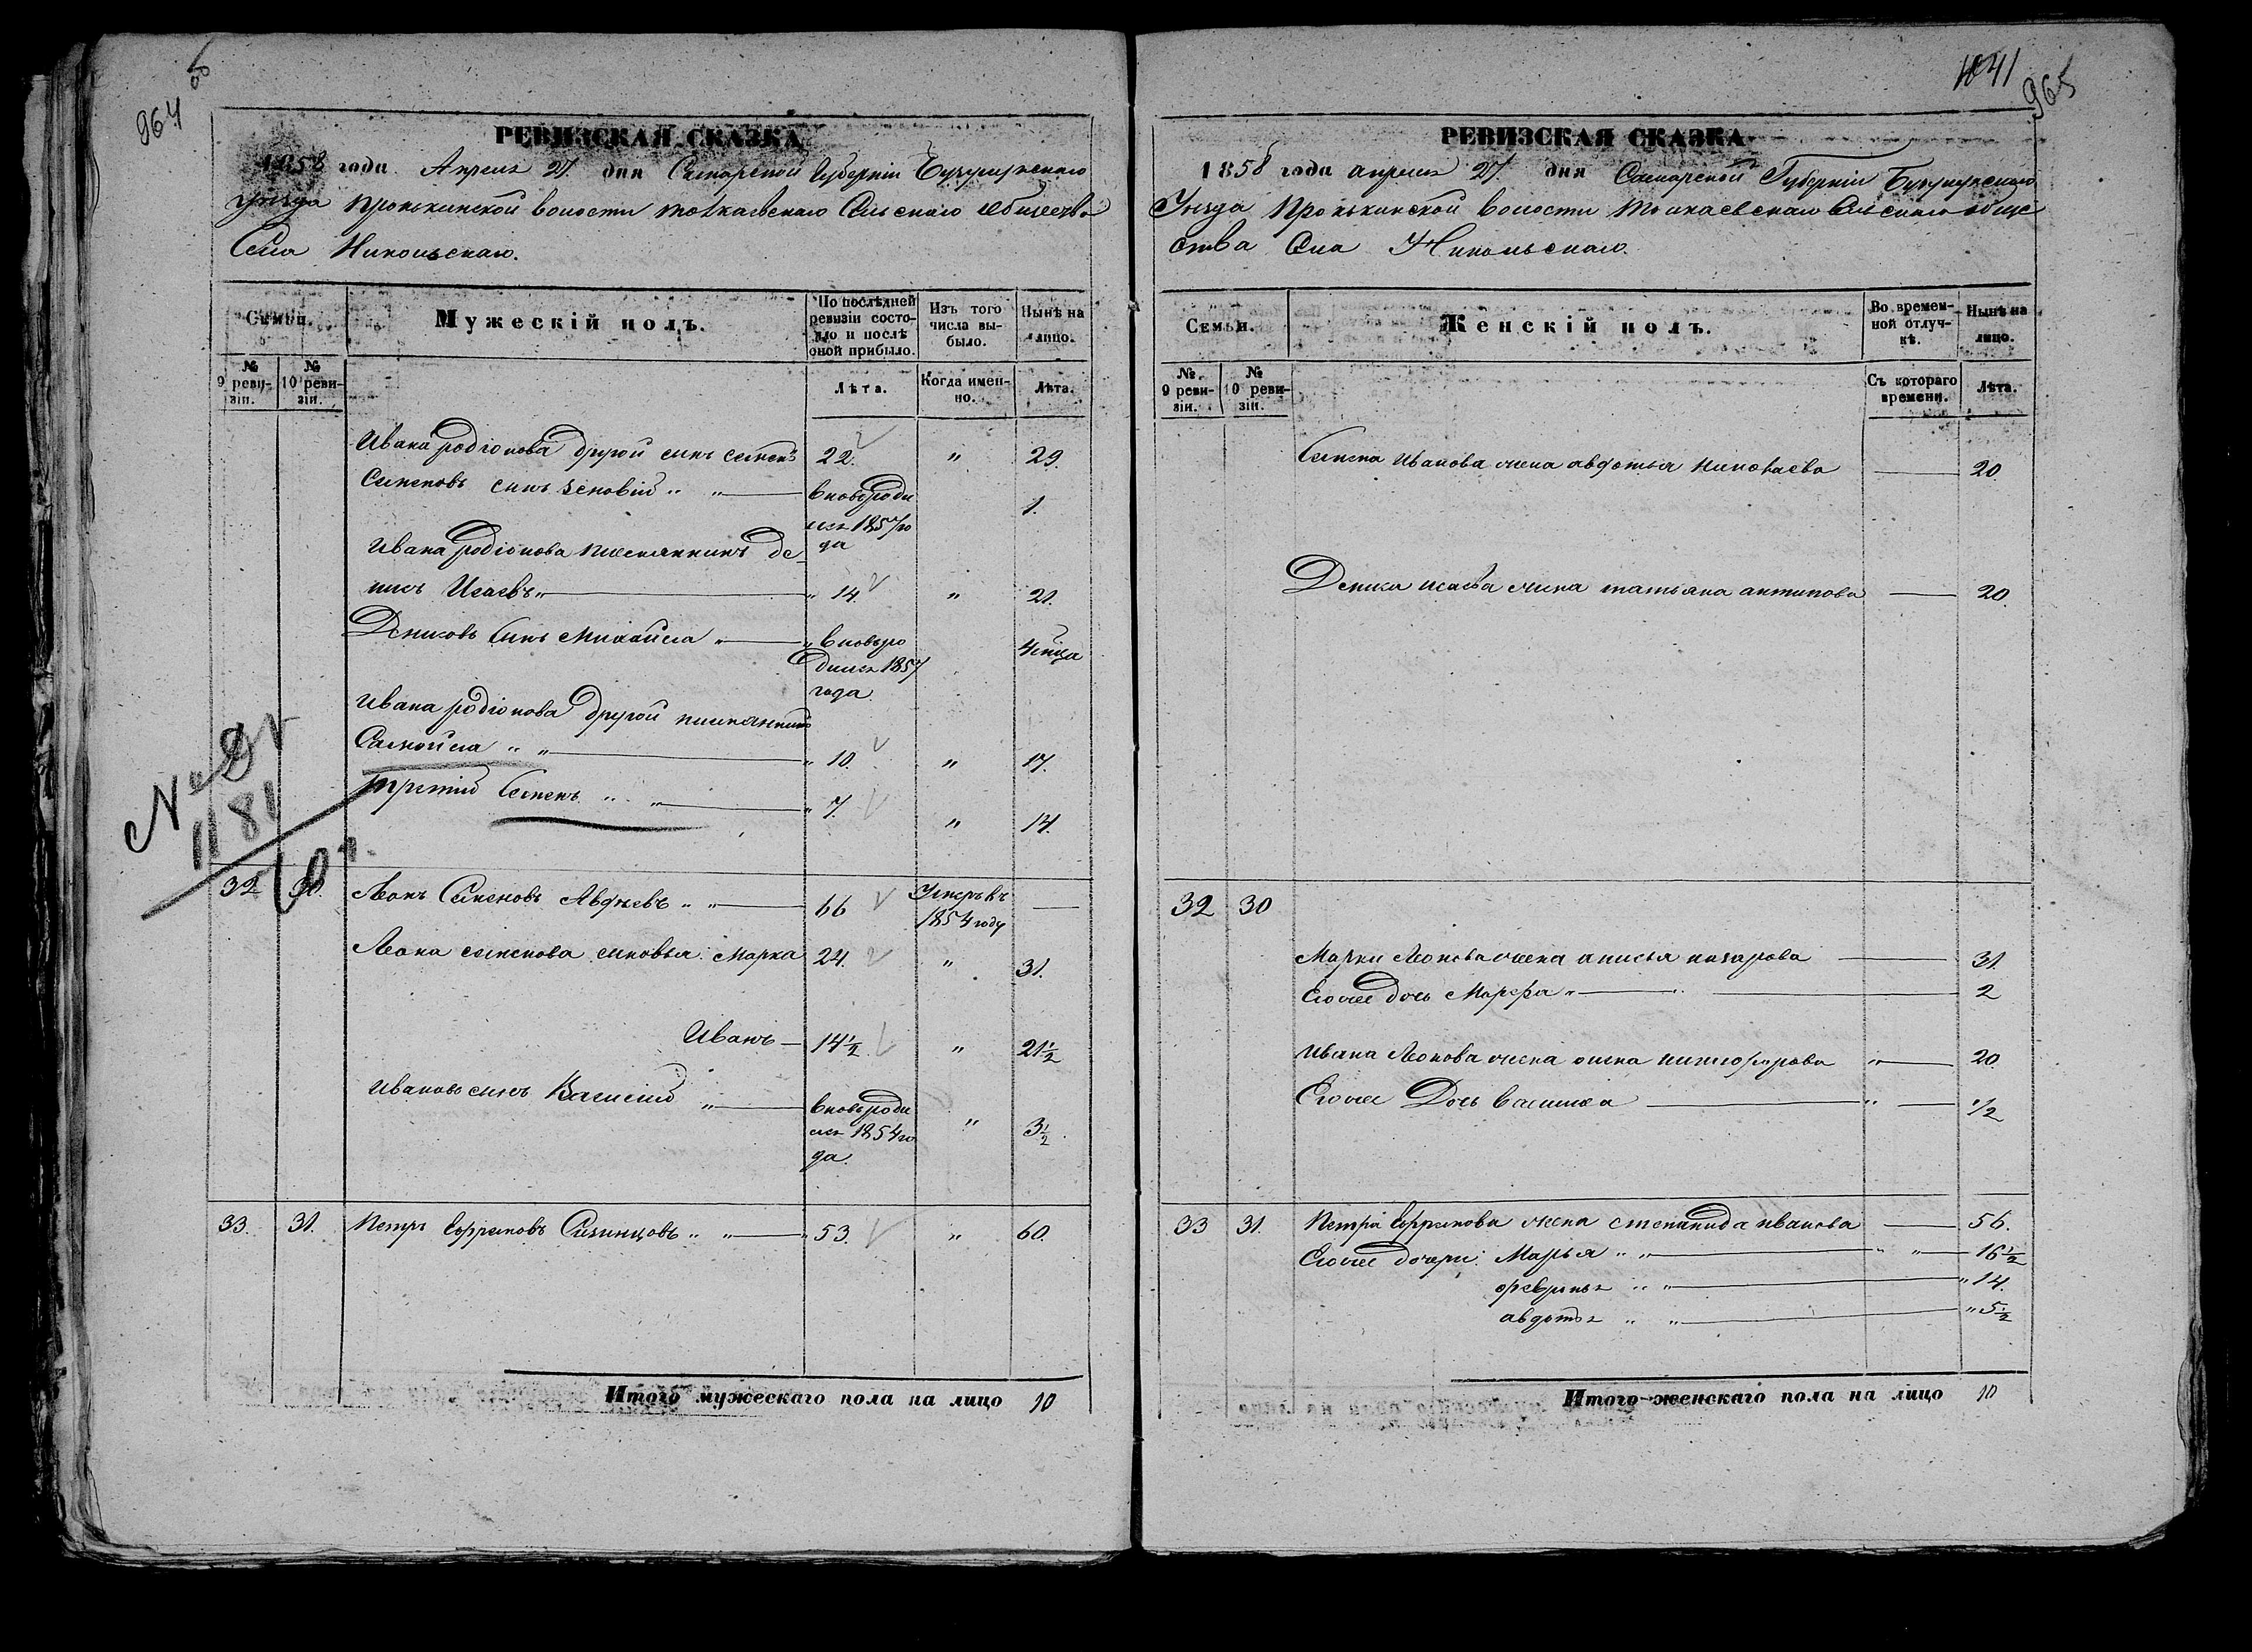 964 об
РЕВИЗСКАЯ СКАЗКА
1858 года Апреля 27 дня Самарской Губерніи Бузулукскаго
уѣзда Пронькинской волости Толкаевскаго Сельскаго Общества
Села Никольскаго.
Семьи.
Мужескій полъ.
По послѣдней ревизіи состояло и послѣ оной прибыло.
Изъ того числа выбыло.
Нынѣ на лицо.
№ 9 ревизіи.
№ 10 ревизіи.
Лѣта.
Когда именно.
Лѣта.
Ивана родіонова другой сынъ семенъ 22. " 29.
Семеновъ сынъ Зеновій " " вновь роди 1.
лся 1857 го
да
Ивана родіонова племянникъ де
нисъ Исаевъ " " 14 " 21.
Денисовъ Сынъ Михайла " " вновь ро 4 мѣсяца
дился 1857
года
Ивана родіонова другой племянникъ
Самойла " " " 10. " 17.
третій Семенъ " " " 7. " 14.
№ 
1181
32 30. Леонъ Семеновъ Авдѣевъ " " 66 Умеръ въ —
1854 году
Леона семенова сыновья: Марка 24. " 31.
Иванъ 14½ " 21½
Ивановъ сынъ Василій " вновь роди " 3½
лся 1854 го
да.
33. 31. Петръ Ефремовъ Сизинцовъ " " " 53. " 60.
Итого мужескаго пола на лицо 10
1041
965
РЕВИЗСКАЯ СКАЗКА
1858 года апреля 27 дня Самарской Губерніи Бузулукскаго
Уѣзда Пронькинской волости Толкаевскаго Сельскаго обще
ства Села Никольскаго.
Семьи.
Женскій полъ.
Во временной отлучкѣ.
Нынѣ на лицо.
№ 9 ревизіи.
№ 10 ревизіи.
Съ котораго времени.
Лѣта.
Семена Иванова жена авдотья николаева — 20
Дениса исаева жена татьяна антипова — 20.
32 30
Марки Леонова жена анисья назарова — 31.
Его же дочь Марфа " — 2
Ивана Леонова жена никифорова " — 20.
Его же Дочь василиса " — 1/2
33 31. Петра Ефремова жена степанида иванова — 56.
Его же дочери: Марья " " " " 16½
февронья " " " 14.
авдотья " " " 5½
Итого женскаго пола на лицо 10